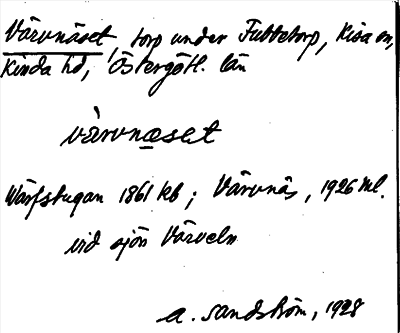 Värvnäset torp under Fubbetorp, Kisa sn,
Kinda hd, Östergötl. län
vàrvnæset
Wärfstugan 1861 kb; Värvnäs, 1926 ml.
vid sjön Värveln
A. Sandström, 1928